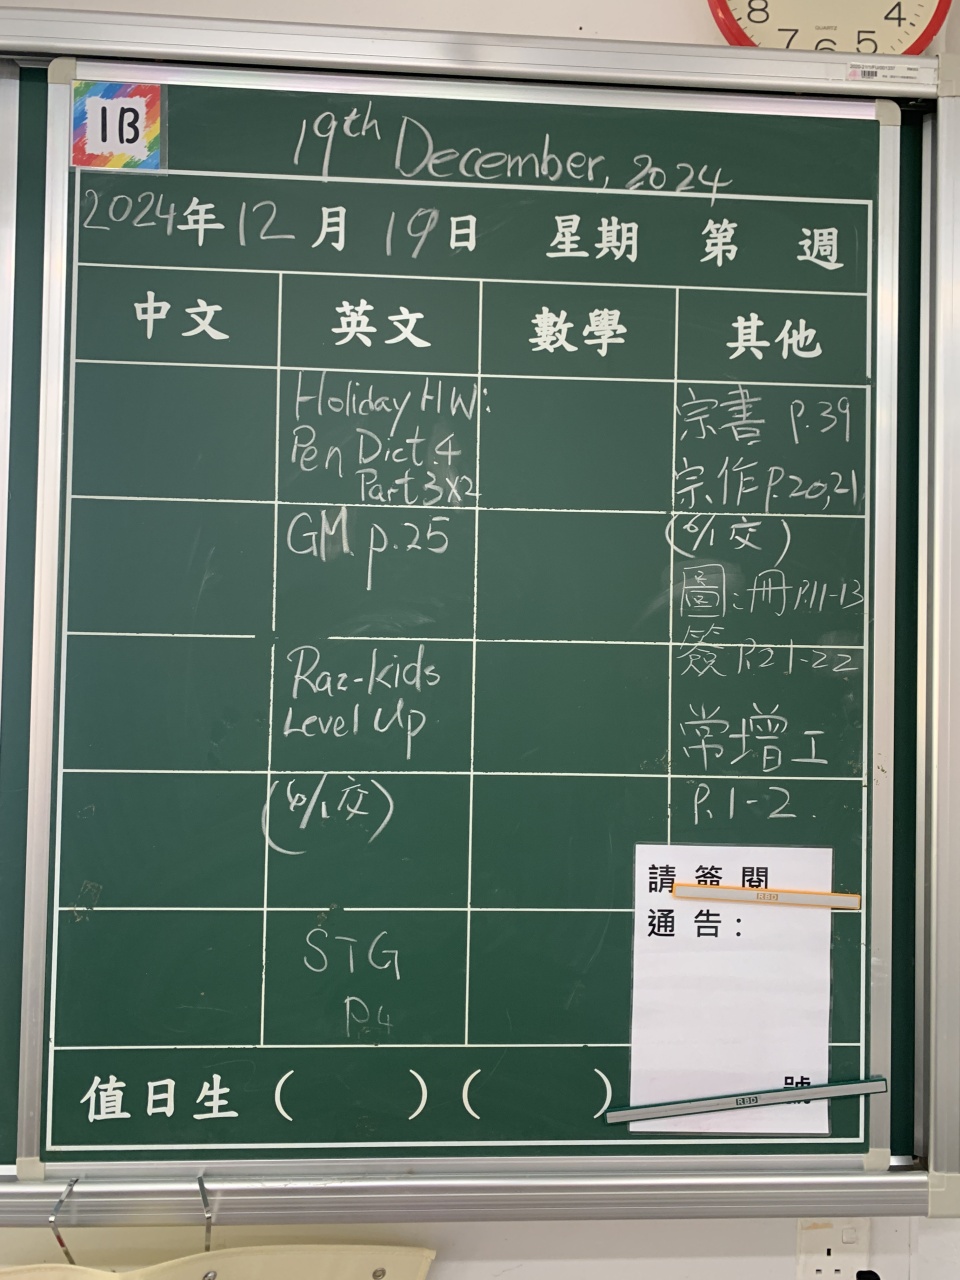 8 4
7 6 5
QUARTZ
1B
19th December, 2024
2024年12月19日 星期 第 週
中文 英文 數學 其他
Holiday HW:
Pen Dict.4
Part 3x2
GM p.25
Raz-kids
Level Up
(6/1交)
STG
P.4
宗書 p.39
宗作 P.20,21
(6/1交)
圖:冊 P.11-13
簽 P.21-22
常增工
P.1-2.
請簽閱
RBD
通告:
號
RBD
值日生 ( ) ( )